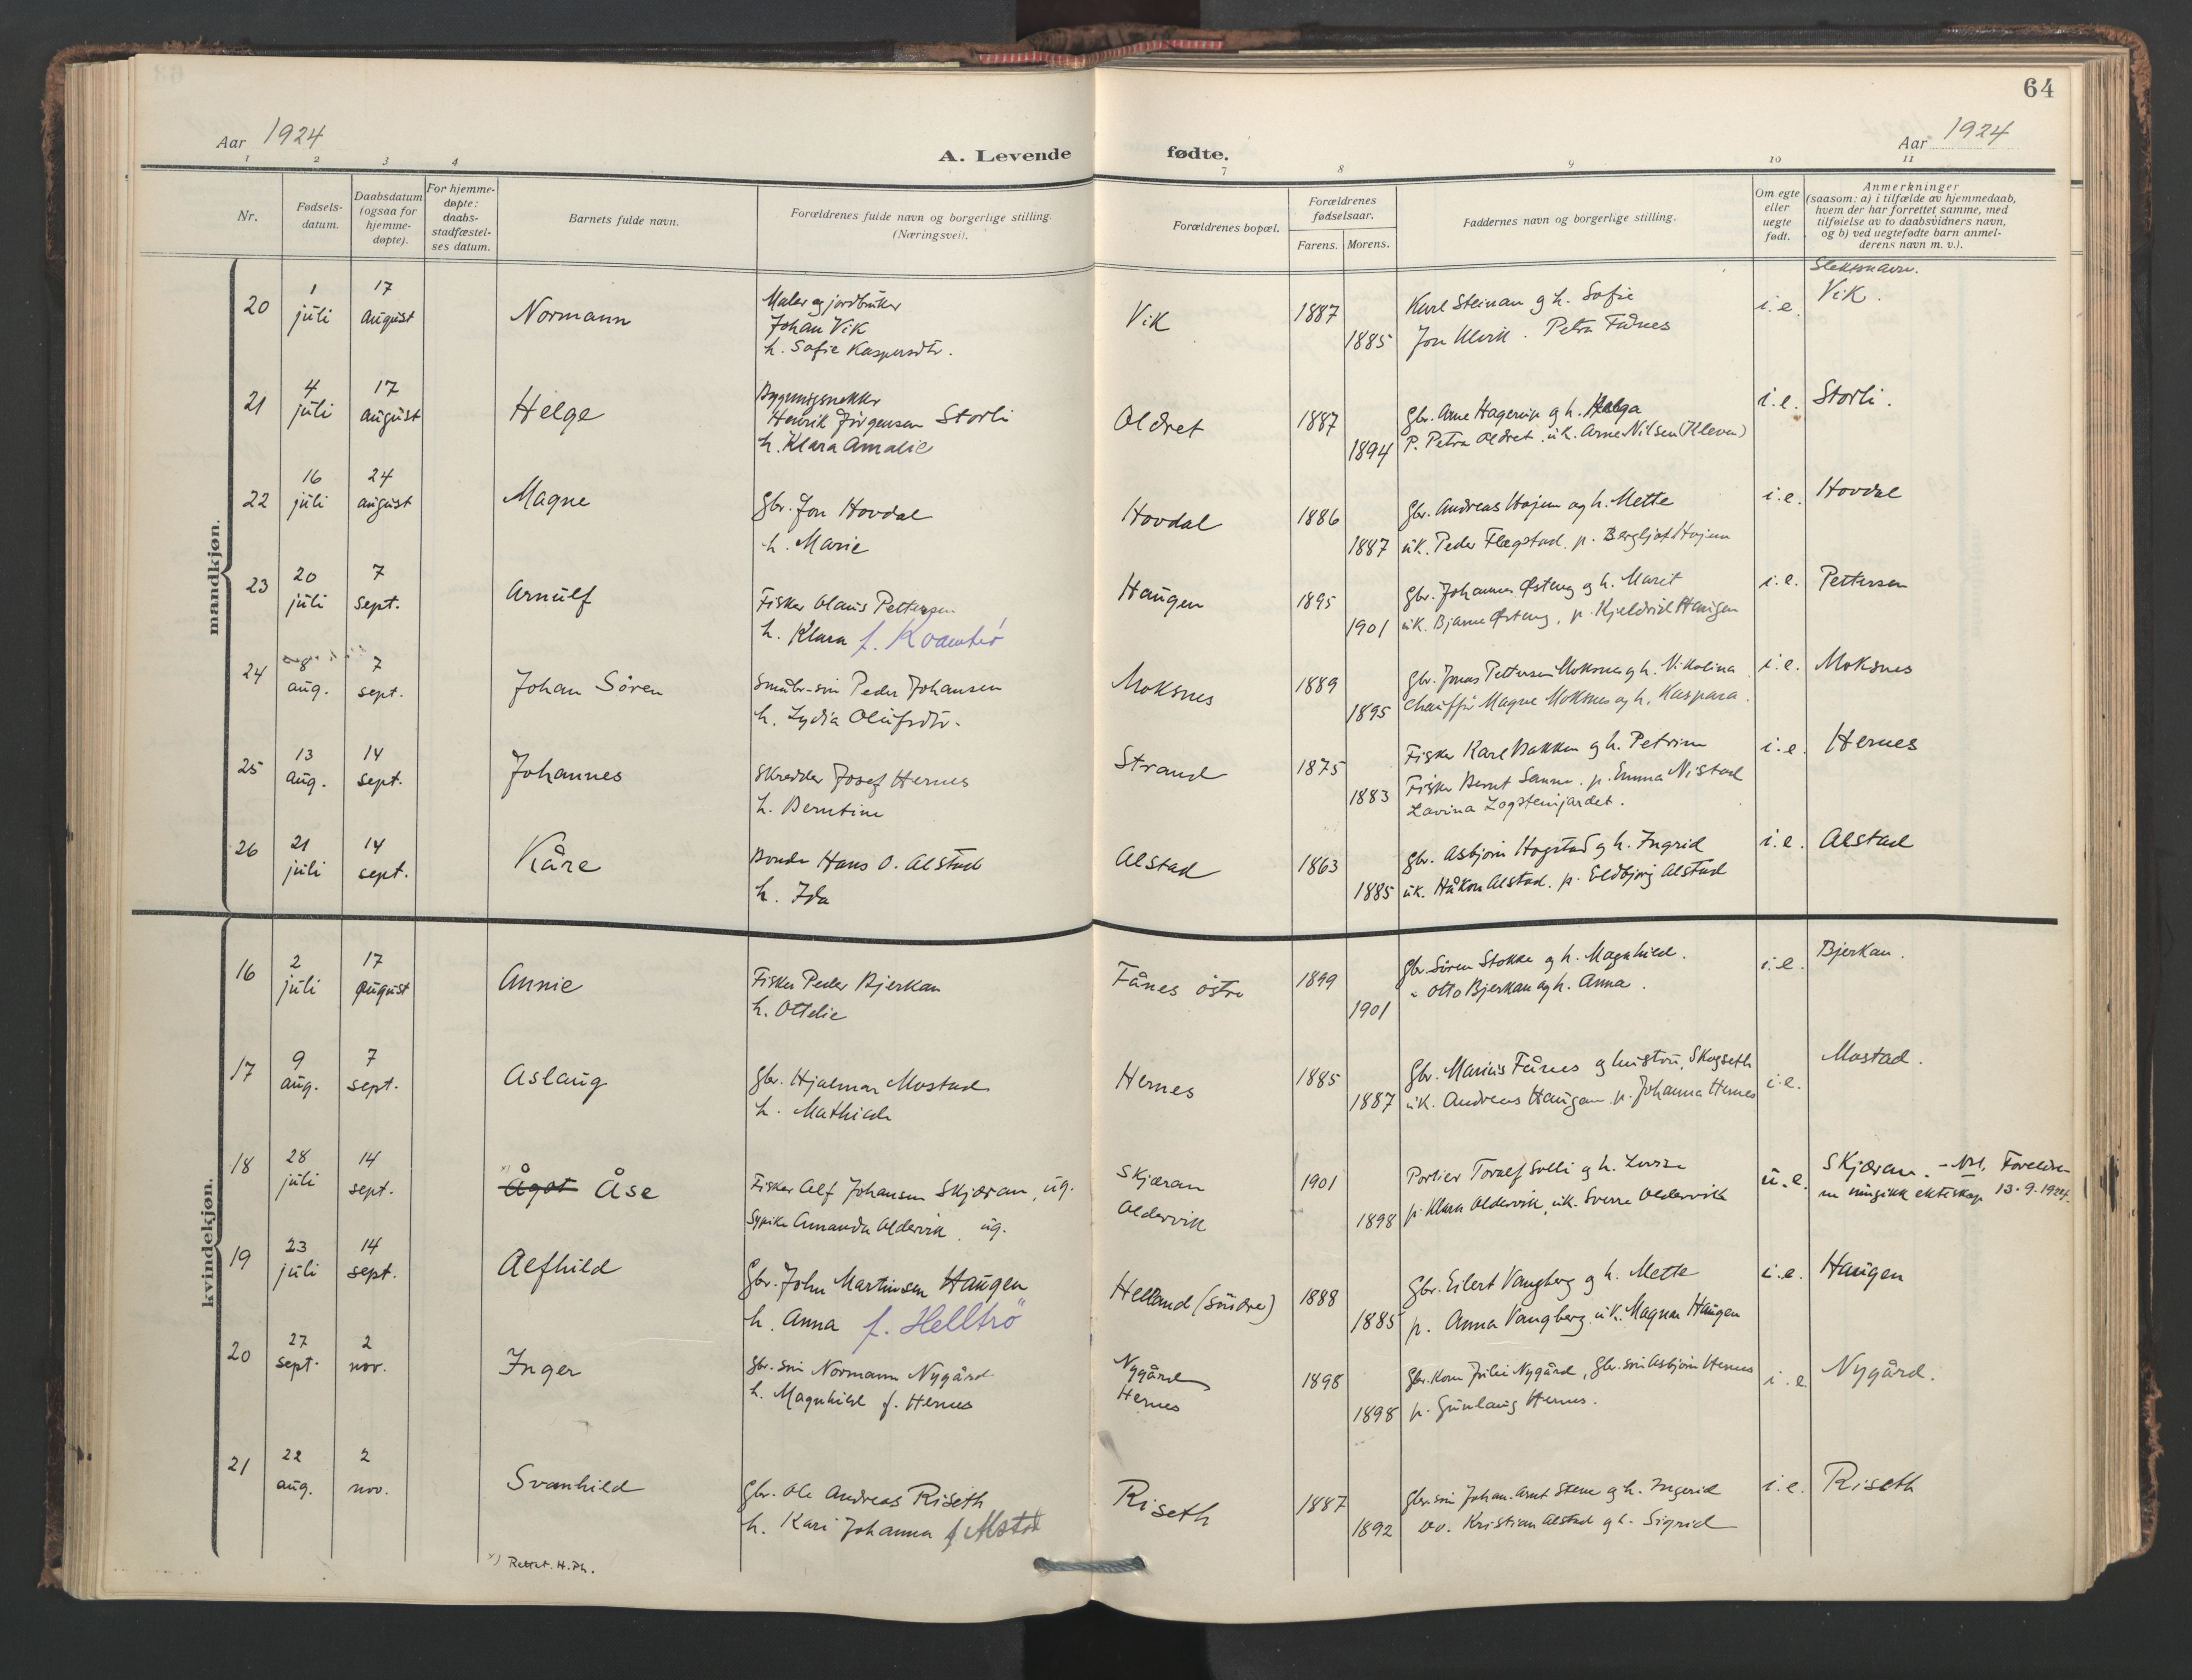 64
Aar 1924
A. Levende fødte.
Aar 1924
1 2 3 4 7 8 9 10 11
Nr.
Fødsels-
datum.
Daabsdatum
(ogsaa for
hjemme-
døpte).
For hjemme-
døpte:
daabs-
stadfæstel-
ses datum.
Barnets fulde navn.
Forældrenes fulde navn og borgerlige stilling.
(Næringsvei).
Forældrenes bopæl.
Forældrenes
fødselsaar.
Farens. Morens.
Faddernes navn og borgerlige stilling.
Om egte
eller
uegte
født.
Anmerkninger
(saasom: a) i tilfælde av hjemmedaab,
hvem der har forrettet samme, med
tilføielse av to daabsvidners navn,
og b) ved uegtefødte barn anmel-
derens navn m. v.).
Slektsnavn.
mandkjøn.
20 1 juli 17 august Normann
Maler og jordbruker
Johan Vik
h. Sofie Kaspersdtr.
Vik 1887 1885
Karl Steinan og h. Sofie
Jon Ulvik. Petra Fånes
i.e. Vik.
21 4 juli 17 august Helge
Bygningssnekker
Henrik Jörgensen Storli
h. Klara Amalie
Oldret 1887 1894
Gbr. Arne Hagervik og h. Helga
P. Petra Oldret. uk. Arne Nilsen (Kleven)
i.e. Storli.
22 16 juli 24 august Magne
Gbr. Jon Hovdal
h. Marie
Hovdal 1886 1887
Gbr. Andreas Hojem og h. Mette
uk. Peder Flægstad. p. Bergljot Hojem
i.e. Hovdal
23 20 juli 7 sept. Arnulf
Fisker Olaus Pettersen
h. Klara f. Kvamtrö
Haugen 1895 1901
Gbr. Johannes Østeng og h. Marit
uk. Bjarne Østeng, p. Kjeldrid Haugen
i.e. Pettersen
24 8 aug. 7 sept. Johan Sören
Småbr-sön Peder Johansen
h. Lydia Olufsdtr.
Moksnes 1889 1895
Gbr. Jonas Pettersen Moksnes og h. Nikolina
Chaufför Magne Moksnes og h. Kaspara.
i.e. Moksnes
25 13 aug. 14 sept. Johannes
Skredder Josef Hernes
h. Berntine
Strand 1875 1883
Fisker Karl Bakken og h. Petrine
Fisker Bernt Sanne. p. Emma Nistad
Lavina Logsteinjardet.
i.e. Hernes
26 21 juli 14 sept. Kåre
Bonde Hans O. Alstad
h. Ida
Alstad 1863 1885
Gbr. Asbjörn Hogstad og h. Ingrid
uk. Håkon Alstad. p. Eldbjörg Alstad
i.e. Alstad
kvindekjøn.
16 2 juli 17 august Annie
Fisker Peder Bjerkan
h. Ottelie
Fånes östre 1899 1901
Gbr. Sören Stokke og h. Magnhild.
" Otto Bjerkan og h. Anna.
i.e. Bjerkan.
17 9 aug. 7 sept. Aslaug
Gbr. Hjalmar Mostad
h. Mathilde
Hernes 1885 1887
Gbr. Marius Fånes og hustru, Skogseth
uk. Andreas Haugan p. Johanna Hernes
i.e. Mostad.
18 28 juli 14 sept. x) Ågot Åse
Fisker Alf Johansen Skjæran, ug.
Sypike Amanda Aldervik, ug.
Skjæran
Oldervik
1901 1898
Portier Toralf Solli og h. Lovise
p. Klara Oldervik, uk. Sverre Oldervik
u.e. Skjæran. - Foreldre-
ne inngikk ekteskap 13.9.1924.
19 23 juli 14 sept. Alfhild
Gbr. John Martinsen Haugen
h. Anna f. Helltrö
Helland (söndre) 1888 1885
Gbr. Eilert Vangberg og h. Mette
p. Anna Vangberg. uk. Magnar Haugen
i.e. Haugen
20 27 sept. 2 nov. Inger
Gbr. sön Normann Nygård
h. Magnhild f. Hernes
Nygård
Hernes
1898 1898
Gbr.kone Julie Nygård, Gbr. sön Asbjörn Hernes
p. Gunlaug Hernes.
i.e. Nygård.
21 22 aug. 2 nov. Svanhild
Gbr. Ole Andreas Riseth
h. Kari Johanna f Alstad
Riseth 1887 1892
Gbr.sön Johan Arnt Stene og h. Ingerid
Do. Kristian Alstad og h. Sigrid
i.e. Riseth
x) Rettet. H.Ph.